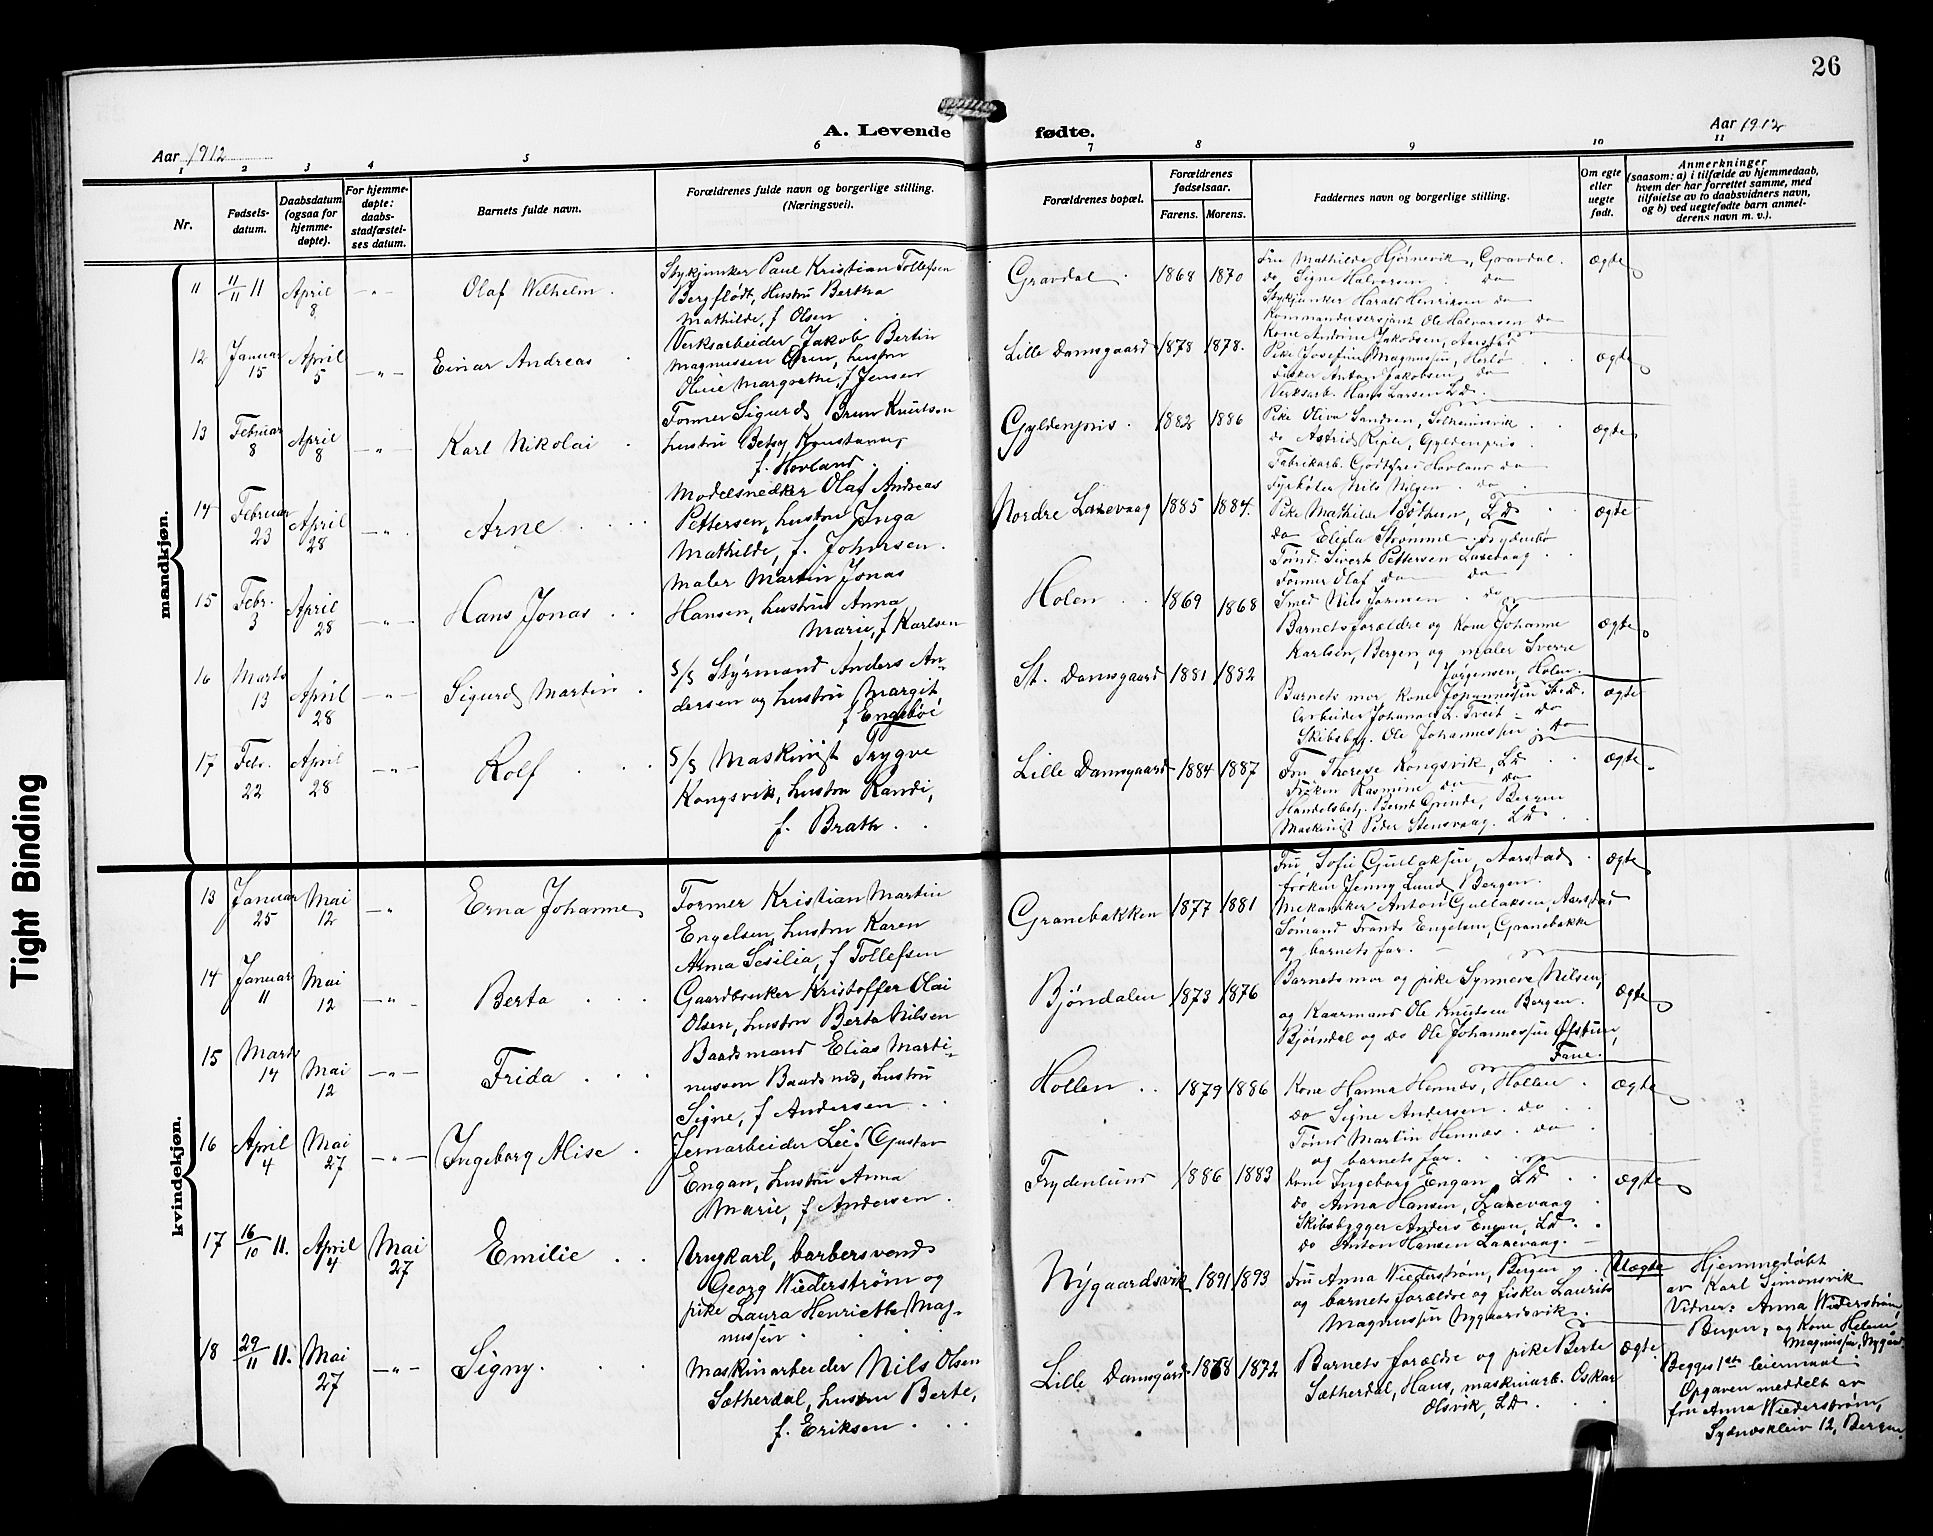 26
A. Levende fødte.
Aar 1912
Aar 1912
1 2 3 4 5 6 7 8 9 10 11
Nr.
Fødsels-
datum.
Daabsdatum
(ogsaa for
hjemme-
døpte).
For hjemme-
døpte:
daabs-
stadfæstel-
ses datum.
Barnets fulde navn.
Forældrenes fulde navn og borgerlige stilling.
(Næringsvei).
Forældrenes bopæl.
Forældrenes
fødselsaar.
Farens. Morens.
Faddernes navn og borgerlige stilling.
Om egte
eller
uegte
født.
Anmerkninger
(saasom: a) i tilfælde av hjemmedaab,
hvem der har forrettet samme, med
tilføielse av to daabsvidners navn,
og b) ved uegtefødte barn anmel-
derens navn m. v.).
mandkjøn.
11 11/11 11 April 8 -"- Olaf Wilhelm.
Stykjunker Paul Kristian Tollefsen
Bergflødt, Hustru Bertha
Mathilde, f. Olsen
Gravdal 1868 1870
Fru Mathilde Hjørnevik, Gravdal.
do Signe Halvorsen do
Stykjunker Harald Henriksen do
Kommandersersjant Ole Halvorsen do
ægte
12 Januar 15 April 5 -"- Einar Andreas
Verksarbeider Jakob Bertin
Magnussen Gren, hustru
Oline Margrethe, f. Jensen
Lille Damsgaard 1878 1878.
Kone Andrine Jakobsen,
Pike Josefine Magnussen, Herlø
Fisker Anton Jakobsen, do
Verksarb. Hans Larsen LD.
ægte
13 Februar 8 April 8 -"- Karl Nikolai
Former Sigurd Brun Knutson
hustru Betsy Konstanse,
f. Hovland.
Gyldenpris. 1882 1886
Pike Oliva Sandren, Solheimsvik
do Astrid Riple, Gyldenpris
Fabrikarb. Godtfred Hovland do
Fyrbøter Nils Nilsen do
ægte
14 Februar 23 April 28 -"- Arne
Modelsnedker Olaf Andreas
Pettersen, hustru Inga
Mathilde, f. Johnsen.
Nordre Laxevaag 1885 1884.
Pike Mathilde Bøthun, LD
do Elida Strømme, Frydenbø
Tønd. Sivert Pettersen Laxevaag
Former Olaf do do
Smed Nils Jormen do
ægte
15 Febr. 3 April 28 -"- Hans Jonas
Maler Martin Jonas
Hansen, hustru Anna
Marie, f. Karlsen
Holen 1869 1868
Barnets forældre og Kone Johanne
Karlsen, Bergen, og maler Sverre
Jørgensen, Holen
ægte
16 Marts 13 April 28 -"- Sigurd Martin
S/S Styrmand Anders An-
dersen og hustru Margit
f. Engebøe
St. Damsgaard 1881 1882
Barnets mor, Kone Johannessen St.D.
Arbeider Johannes L. Treit - do
Skibsbg. Ole Johannessen - do
ægte
17 Febr. 22 April 28 -"- Rolf
S/S Maskinist Trygve
Kongsvik, hustru Randi,
f. Brath.
Lille Damsgaard 1884 1887
Fru Therese Kongsvik, LD
Frøken Rasmine do do
Handelsbetj. Bernt Grinde, Bergen
Maskinist Peder Stensvaag. LD
ægte
kvindekjøn.
13 Januar 25 Mai 12 -"- Erna Johanne
Former Kristian Martin
Engelsen, hustru Karen
Anna Sesilia, f. Tollefsen
Granebakken 1877 1881
Fru, Sofie Gullaksen, Aarstad
frøken Jenny Lund, Bergen.
Mekaniker Anton Gullaksen, Aarstad
Sømand Frants Engelsen, Granebakke
og barnets far.
ægte
14 Januar 11 Mai 12 -"- Berta
Gaardbruker Kristoffer Olai
Olsen, hustru Berta Nilsen
Bjøndalen 1873 1876
Barnets mor og pike Synneve Nilsen,
og Kaarmand Ole Knutsen Bergen.
Bjørndal og do Ole Johannessen Østtun,
Fane.
ægte
15 Marts 14 Mai 12 -"- Frida
Baadsmand Elias Marti-
nussen Baadsnes, hustru
Signe, f. Andersen
Hollen 1879 1886
Kone Hanna Hennøs, Hollen
do Signe Andersen do
Tømd Martin Hennøs do
og barnets far.
ægte
16 April 4 Mai 27 -"- Ingeborg Alise.
Jernarbeider Leif Gustav
Engan, hustru Anna
Marie, f. Andersen.
Frydenlund 1886 1883
Kone Ingeborg Engan, LD
do Anna Hansen, Laxevaag
Skibsbygger Anders Engen, LD
do Anton Hansen Laxevaag.
ægte
17 16/10 11. April 4 Mai 27 Emilie
Ungkarl, barbersvend
Georg Wiederstrøm og
pike Laura Henriette Mag-
nussen
Nygaardsvik 1891 1893
Fru Anna Wiederstrøm, Bergen
og barnets forældre og fisker Laurits
Magnussen Nygaardsvik.
Uægte
Hjemmedøbt
av Karl Simonsvik
Vidner: Anna Wiederstrøm,
Bergen, og Kone Helene
Magnussen, Nygård
Begges 1ste leiermaal
Opgaven meddelt av
fru Anna Wiederstrøm,
Sydneskleiv 12, Bergen.
18 29/11 11. Mai 27 -"- Signy.
Maskinarbeider Nils Olsen
Sætherdal, hustru Berte,
f. Eriksen
Lille Damsgård 1868 1872
Barnets forældre og pike Berte
Sætherdal, Haus, maskinarb. Oskar
Olsvik, LD
ægte
Tight Binding